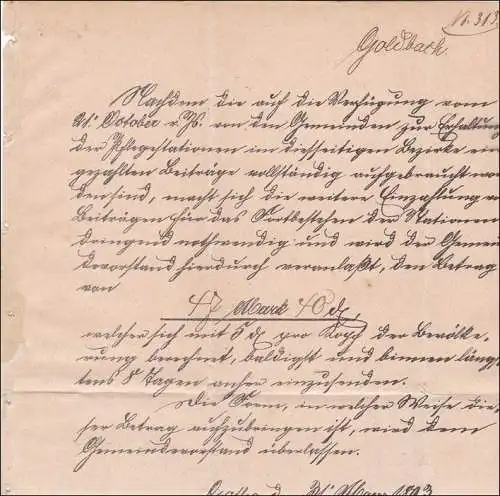 N. 313.
Goldbach.
Nachdem die auf die Verfügung vom
21. October v. Js. von den Gemeinden zur Erhaltung
der Pflegestationen im diesseitigen Bezirke ein-
gezahlten Beiträge vollständig aufgebraucht wor-
den sind, macht sich die weitere Einzahlung v
Beiträgen für das Fortbestehen der Stationen
dringend nothwendig und wird der Gemein
devorstand hierdurch veranlaßt, den Betrag
von
47 Mark 40 d,
welcher sich mit 5 d pro Kopf der Bevölke-
rung berechnet, baldigst und binnen längs-
tens 8 Tagen anher einzusenden.
Die Form, in welcher Weise die-
ser Betrag aufzubringen ist, wird dem
Gemeindevorstand überlassen.
Gotha, d. 21. März 1893.